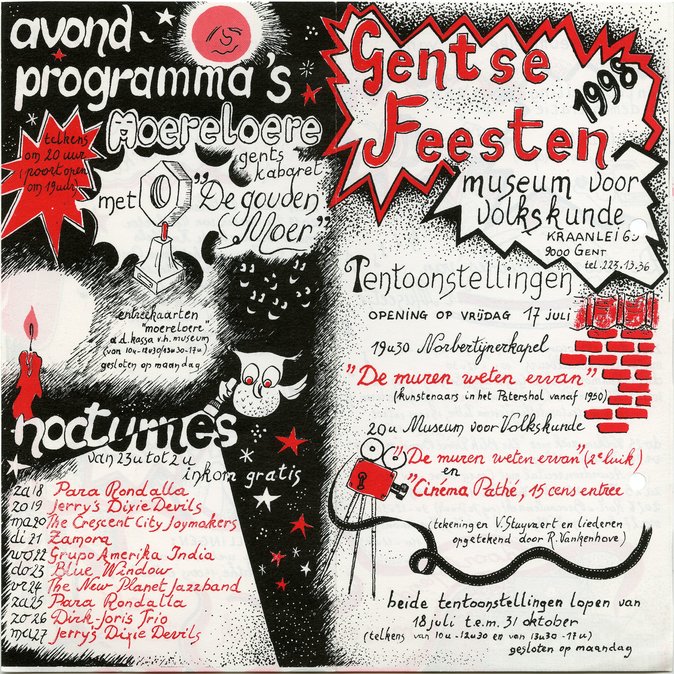 avond
programma's
Moereloere
telkens
om 20 uur
(poort open
om 19u30)
gents
kabaret
met "De gouden
Moer"
entreekaarten
"moereloere"
a.d. kassa v.h. museum
(van 10u-12u30/13u30-17u)
gesloten op maandag
nocturnes
van 23u tot 2u
inkom gratis
za 18 Para Rondalla
zo 19 Jerry's Dixie Devils
ma 20 The Crescent City Joymakers
di 21 Zamora
wo 22 Grupo Amerika India
do 23 Blue Window
vr 24 The New Planet Jazzband
za 25 Para Rondalla
zo 26 Dirk-Joris Trio
ma 27 Jerry's Dixie Devils
Gentse
Feesten
1998
museum voor
volkskunde
KRAANLEI 65
9000 GENT
tel. 223.13.36
Tentoonstellingen
OPENING OP VRIJDAG 17 juli
19u30 Norbertijnerkapel
"De muren weten ervan"
(kunstenaars in het Patershol vanaf 1950)
20u Museum voor Volkskunde
"De muren weten ervan" (2e luik)
en
"Cinéma Pathé, 15 cens entree
(tekeningen V. Stuyvaert en liederen
opgetekend door R. Vankenhove)
beide tentoonstellingen lopen van
18 juli t.e.m. 31 oktober
(telkens van 10u-12u30 en van 13u30-17u)
gesloten op maandag